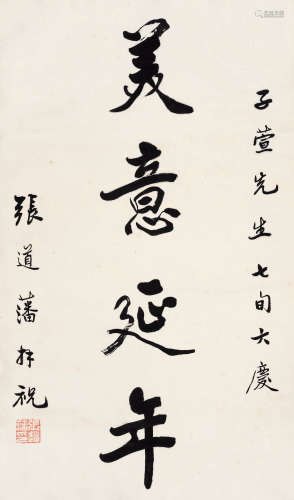 子萱先生七旬大慶
美意延年
張道藩拜祝